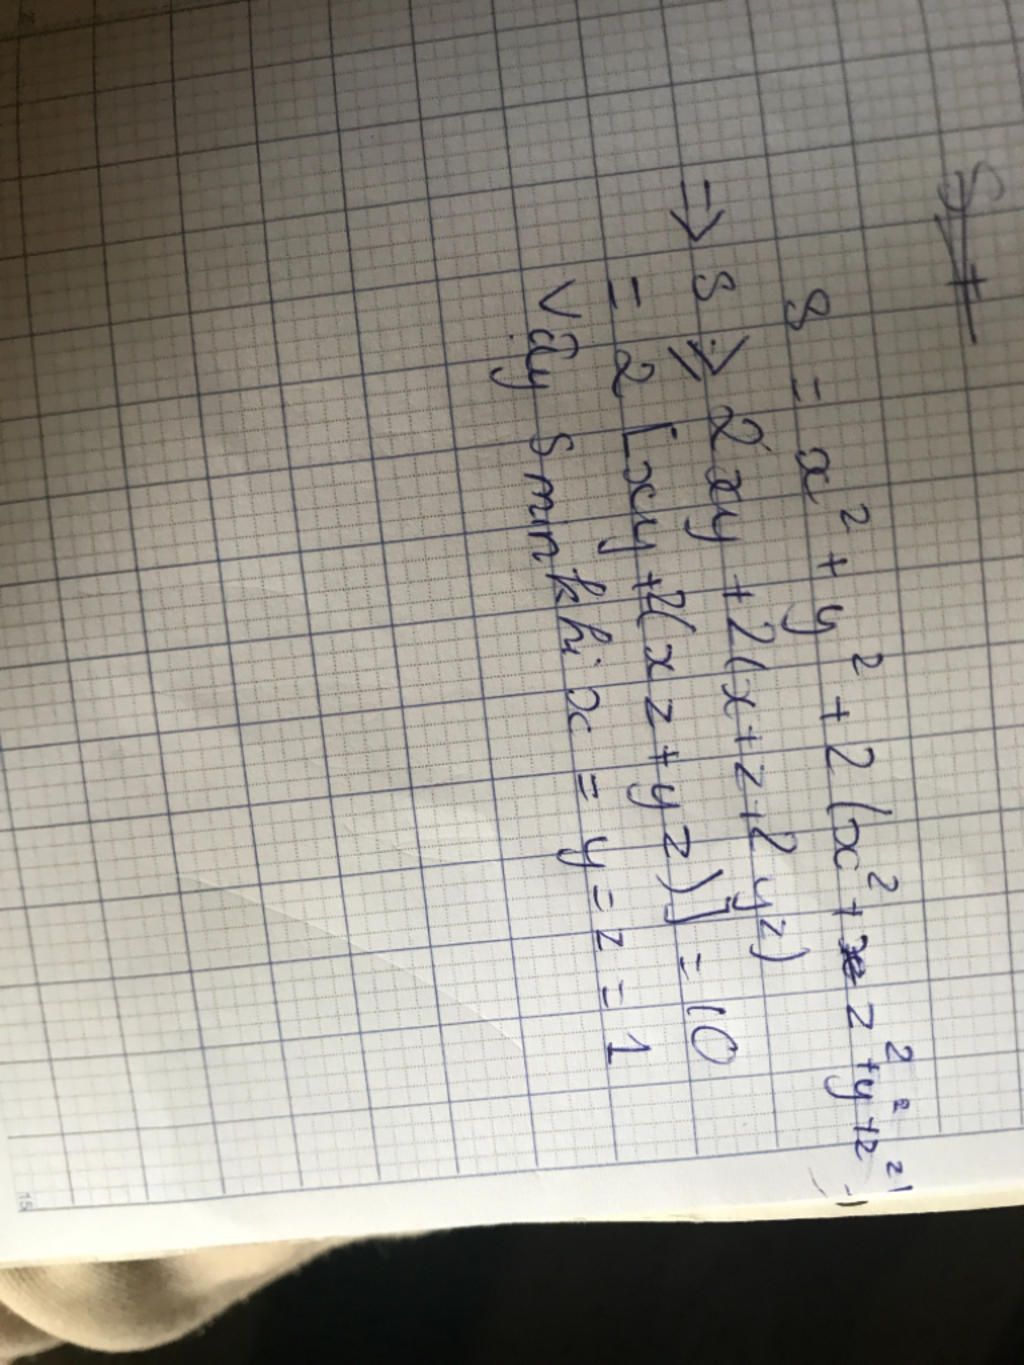 S = x² + y² + 2(x² + z² + y² + z²)
=> S ≥ 2xy + 2(x+z+2yz)
= 2[xy+2(xz+yz)] = 10
Vậy S min khi x = y = z = 1